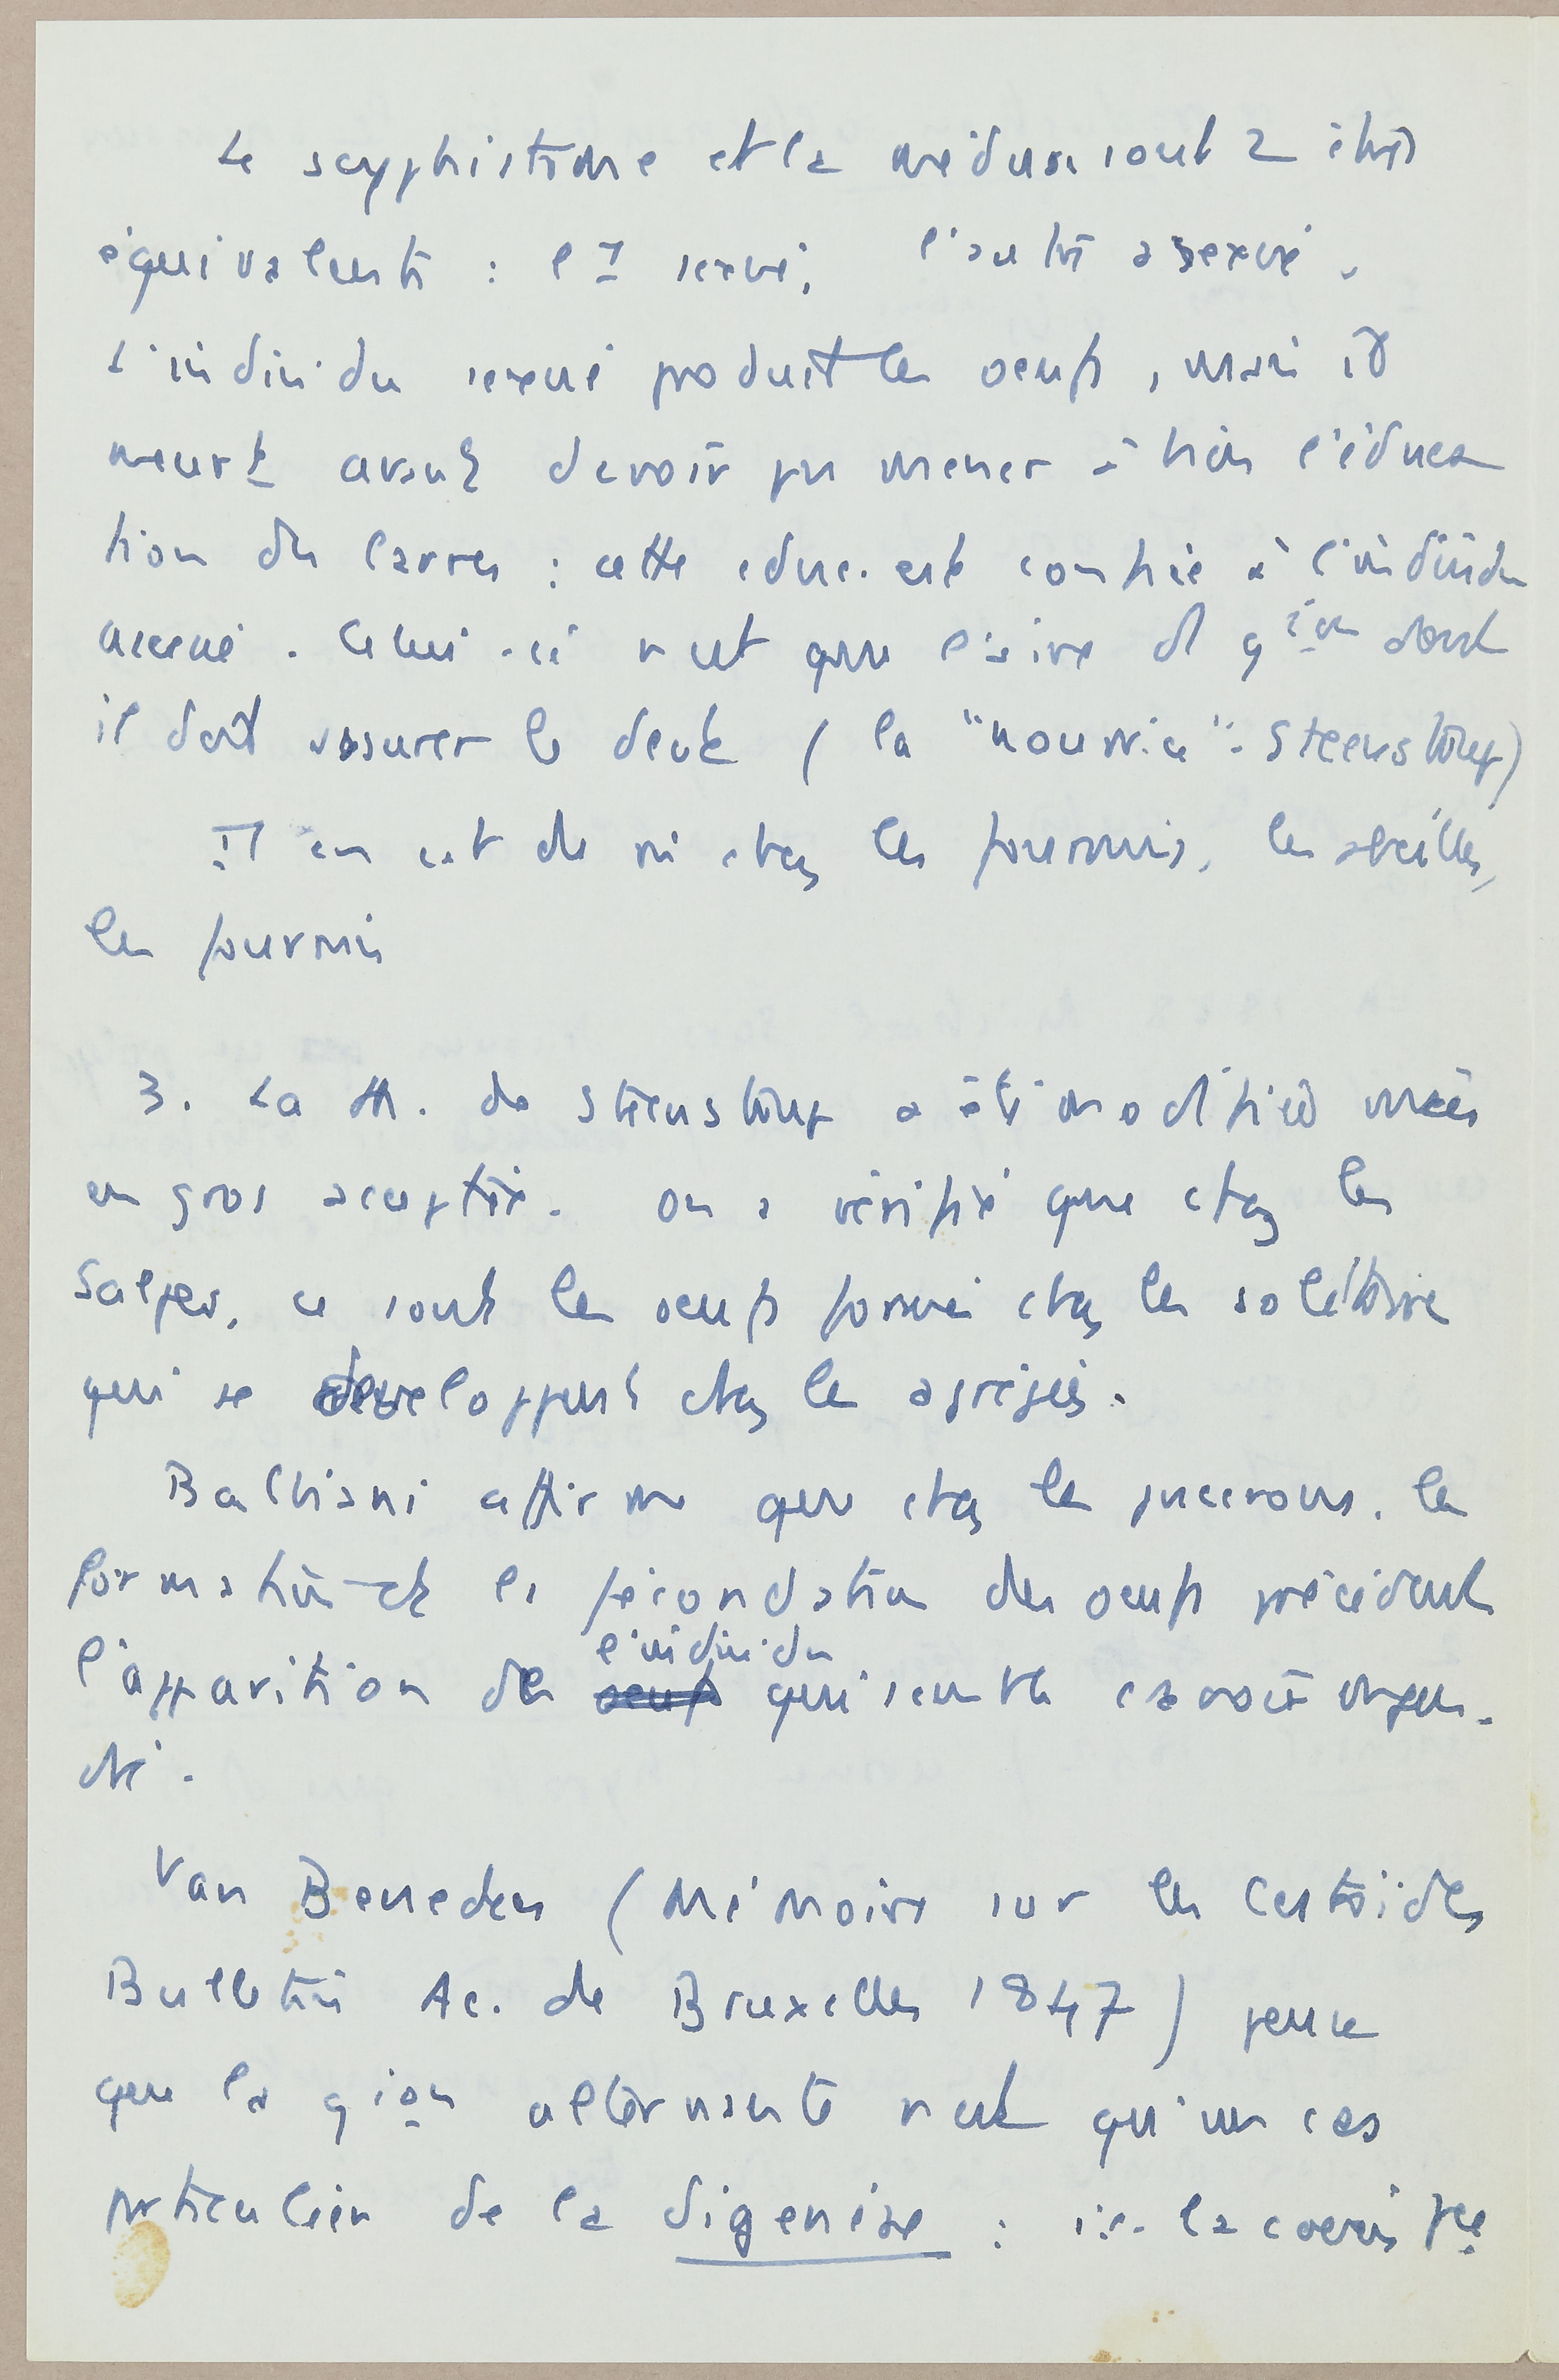 Le scyphistome et la méduse sont 2 êtres
équivalents : l'1 sexué, l'autre asexué.
L'individu sexué produit les oeufs, mais il
meurt avant d'avoir pu mener à bien l'éduca
tion des larves : cette educ. est confiée à l'individu
asexué. Celui-ci n'est que l'aîné d'1 gion dont
il doit assurer le devt (la "nourrice" : Steenstrup)
Il en est de m chez les fourmis, les abeilles,
les fourmis
3. La th. de Steenstrup a été modifiée mais
en gros acceptée. On a vérifié que chez les
Salpes, ce sont les oeufs formés chez les solitaires
qui se developpent chez les agrégés.
Balbiani affirme que chez les pucerons, la
formation et la fécondation des oeufs précèdent
l'apparition de l'individu qui semble les avoir engen-
dré.
Van Beneden (Mémoire sur les Cestoïdes
Bulletin Ac. de Bruxelles 1847) pense
que la gion alternante n'est qu'un cas
particulier de la digenèse : i.e. la coexistce